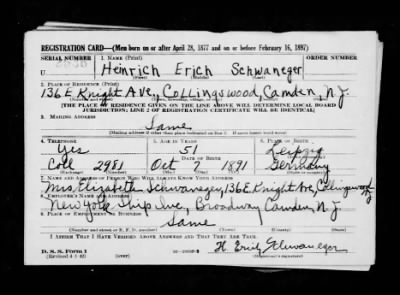 REGISTRATION CARD—(Men born on or after April 28, 1877 and on or before February 16, 1897)
SERIAL NUMBER 1. NAME (Print) ORDER NUMBER
Heinrich Erich Schwaneger
(First) (Middle) (Last)
2. PLACE OF RESIDENCE (Print)
136 E Knight Ave, Collingswood, Camden, N.J.
[THE PLACE OF RESIDENCE GIVEN ON THE LINE ABOVE WILL DETERMINE LOCAL BOARD
JURISDICTION; LINE 2 OF REGISTRATION CERTIFICATE WILL BE IDENTICAL]
3. MAILING ADDRESS
Same
[Mailing address if other than place indicated on line 2. If same insert word same]
4. TELEPHONE 5. AGE IN YEARS 6. PLACE OF BIRTH
Yes 51 Leipzig
DATE OF BIRTH
Coll 2981 Oct 1891 Germany
(Exchange) (Number) (Mo.) (Day) (Yr.) (State or country)
7. NAME AND ADDRESS OF PERSON WHO WILL ALWAYS KNOW YOUR ADDRESS
Mrs. Elizabeth Schwaneger, 136 E Knight Ave, Collingswood
8. EMPLOYER'S NAME AND ADDRESS
New York Ship Inc, Broadway Camden, N.J.
9. PLACE OF EMPLOYMENT OR BUSINESS
Same
(Number and street or R. F. D. number) (Town) (County) (State)
I AFFIRM THAT I HAVE VERIFIED ABOVE ANSWERS AND THAT THEY ARE TRUE.
D. S. S. Form 1
(Revised 4-1-42) (over)
H. Erich Schwaneger